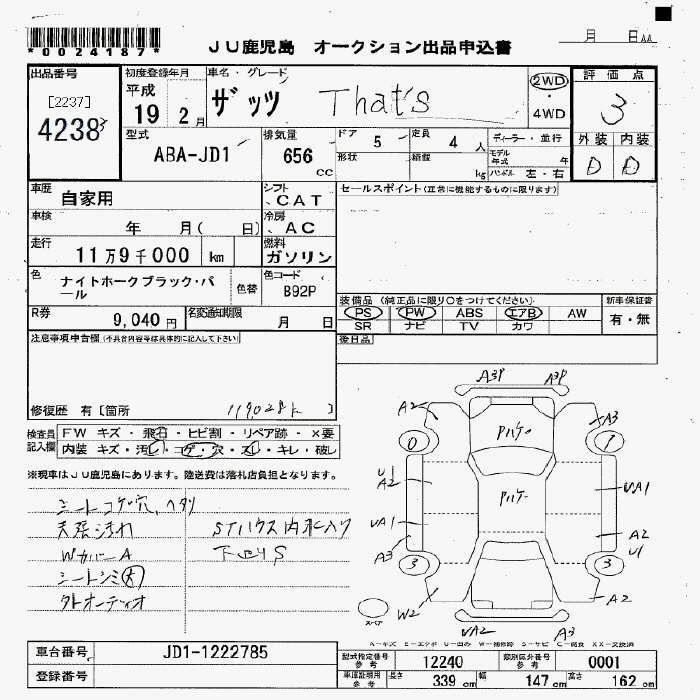 *0024187*
JU鹿児島 オークション出品申込書
月 日
出品番号
[2237]
4238
初度登録年月
平成
19 2 月
車名・グレード
ザッツ That's
2WD
・
4WD
評価点
3
外装 内装
D D
型式
ABA-JD1
排気量
656
cc
ドア 5
定員 4 人
形状
積載 kg
ディーラー・並行
モデル年式 年
ハンドル 左・右
車歴
自家用
シフト
CAT
セールスポイント(正常に機能するものに限ります)
車検
年 月( 日)
冷房
AC
走行
11万9千000 km
燃料
ガソリン
色
ナイトホークブラック・パール
色替
色コード
B92P
装備品 (純正品に限り○をつけてください)
PS PW ABS エアB AW
SR ナビ TV カワ
新車保証書
有・無
R券
9,040 円
名変通知期限
月 日
後日品
注意事項申告欄(不具合内容等は具体的に記入して下さい)
修復歴 有[箇所 119028k ]
検査員記入欄
FW キズ・飛石・ヒビ割・リペア跡・×要
内装 キズ・汚レ・コゲ・穴・スレ・キレ・破レ
※現車はJU鹿児島にあります。陸送費は落札店負担となります。
シートコゲ穴、ヘタリ
天張汚れ
STハウス内水入り
WカバーA
下回りS
シートシミ大
外オーディオ
A3P A3P
A2 A3
0 1
パケー
U1
A2
UA1
パケー
UA1
A2
U1
A3
3 3
W2 A2
スペア
UA2 A3
A-キズ E-エクボ U-凹み W-補修跡 S-サビ C-腐食 XX-交換済
車台番号
JD1-1222785
登録番号
型式指定番号
参考
12240
類別区分番号
参考
0001
車庫証明用
参考
長さ 339 cm
幅 147 cm
高さ 162 cm